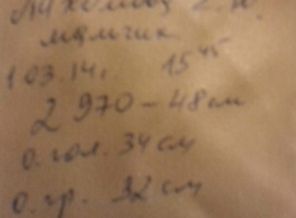 мальчик
1.03.14г. 15⁴⁵
2 970 – 48 см
о. гол. 34 см
о. гр. 32 см